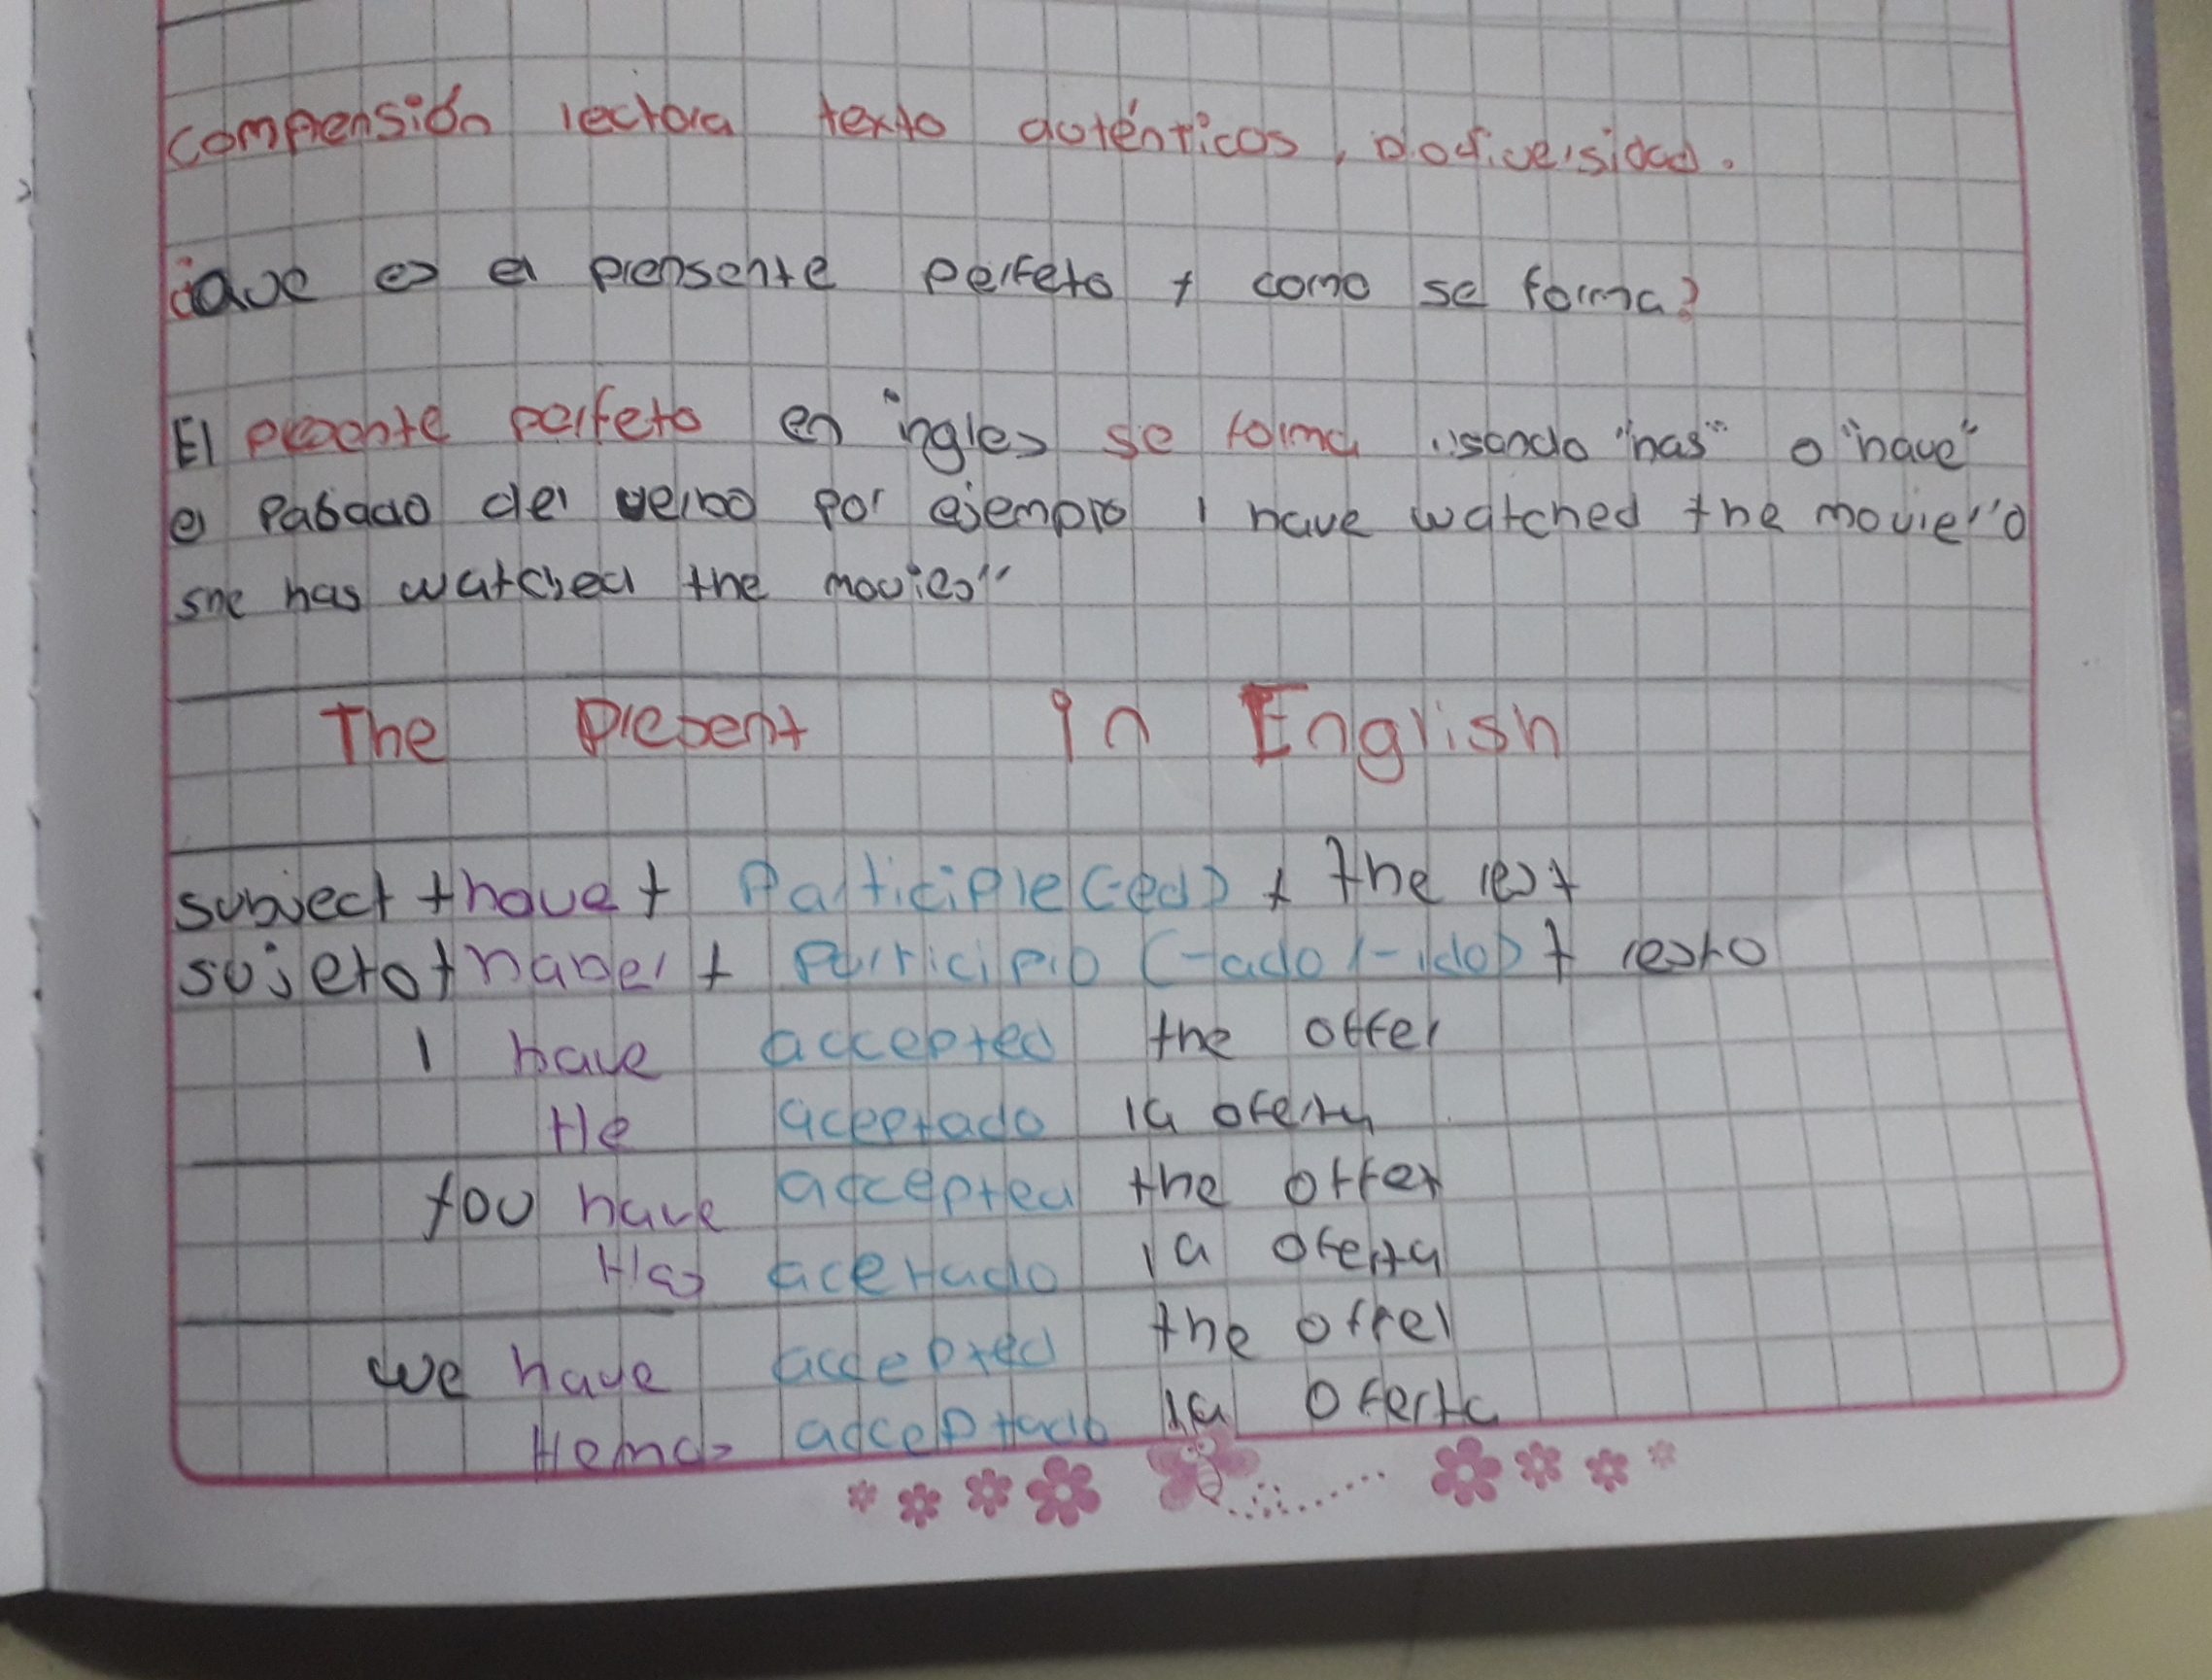 comprensión lectora texto auténticos, biodiversidad.
¿Que es el prensente perfeto y como se forma?
El presente perfeto en ingles se forma usando "has" o "have"
el Pasado del verbo por ejemplo I have watched the movie" o
she has watched the movies"
The Present in English
subject + have + Participle (-ed) + the rest
sujeto + haber + Participio (-ado / -ido) + resto
I have accepted the offer
He aceptado la oferta
You have accepted the offer
Has acetado la oferta
we have accepted the offer
Hemos acceptado la oferta